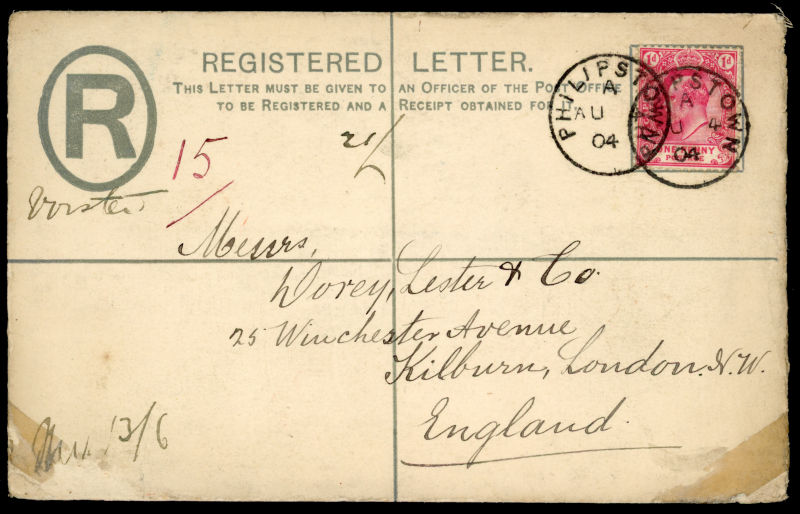 REGISTERED LETTER.
THIS LETTER MUST BE GIVEN TO AN OFFICER OF THE POST OFFICE
TO BE REGISTERED AND A RECEIPT OBTAINED FOR
R
1d 1d
ONE PENNY
PHILIPSTOWN
A
AU 4
04
PHILIPSTOWN
A
AU 4
04
15
21/
Vorster
Messrs,
Dorey, Lester & Co.
25 Winchester Avenue
Kilburn, London. N.W.
England.
13/6